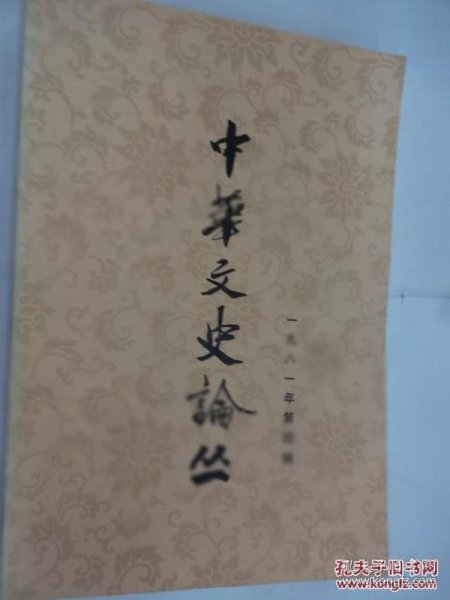 中華文史論丛
一九八一年第四辑
孔夫子旧书网
www.kongfz.com